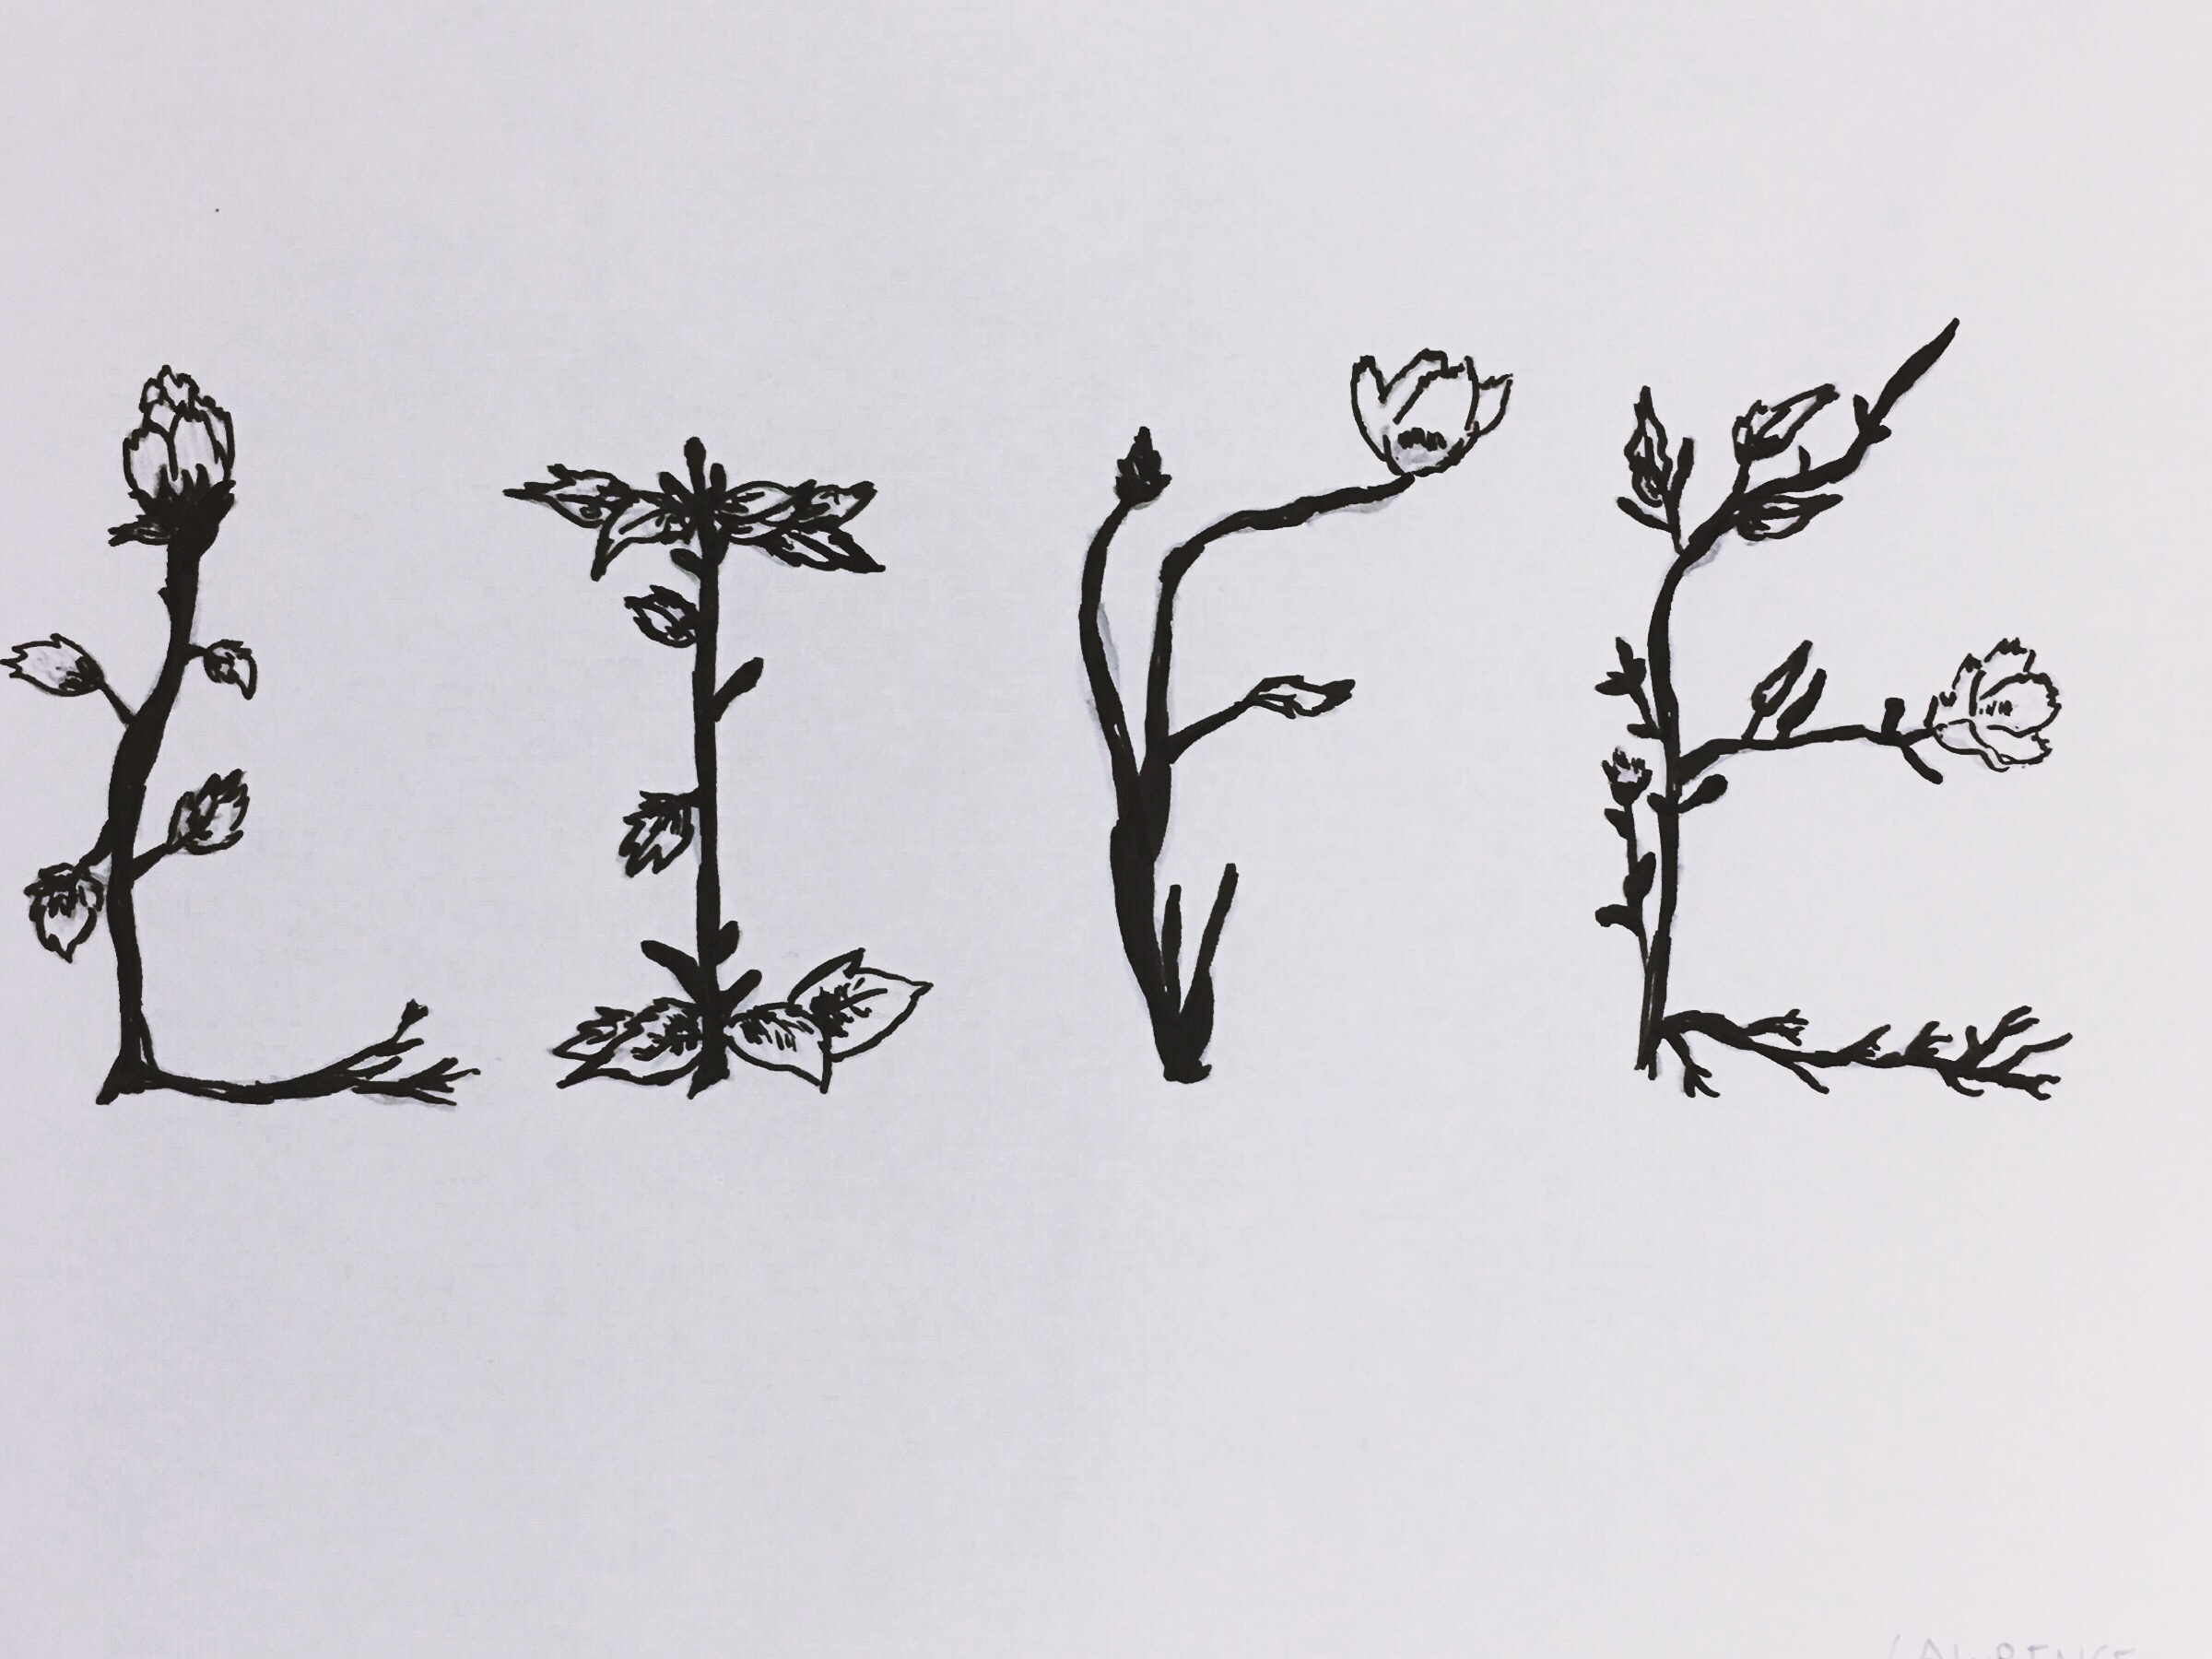 LIFE
LAWRENCE